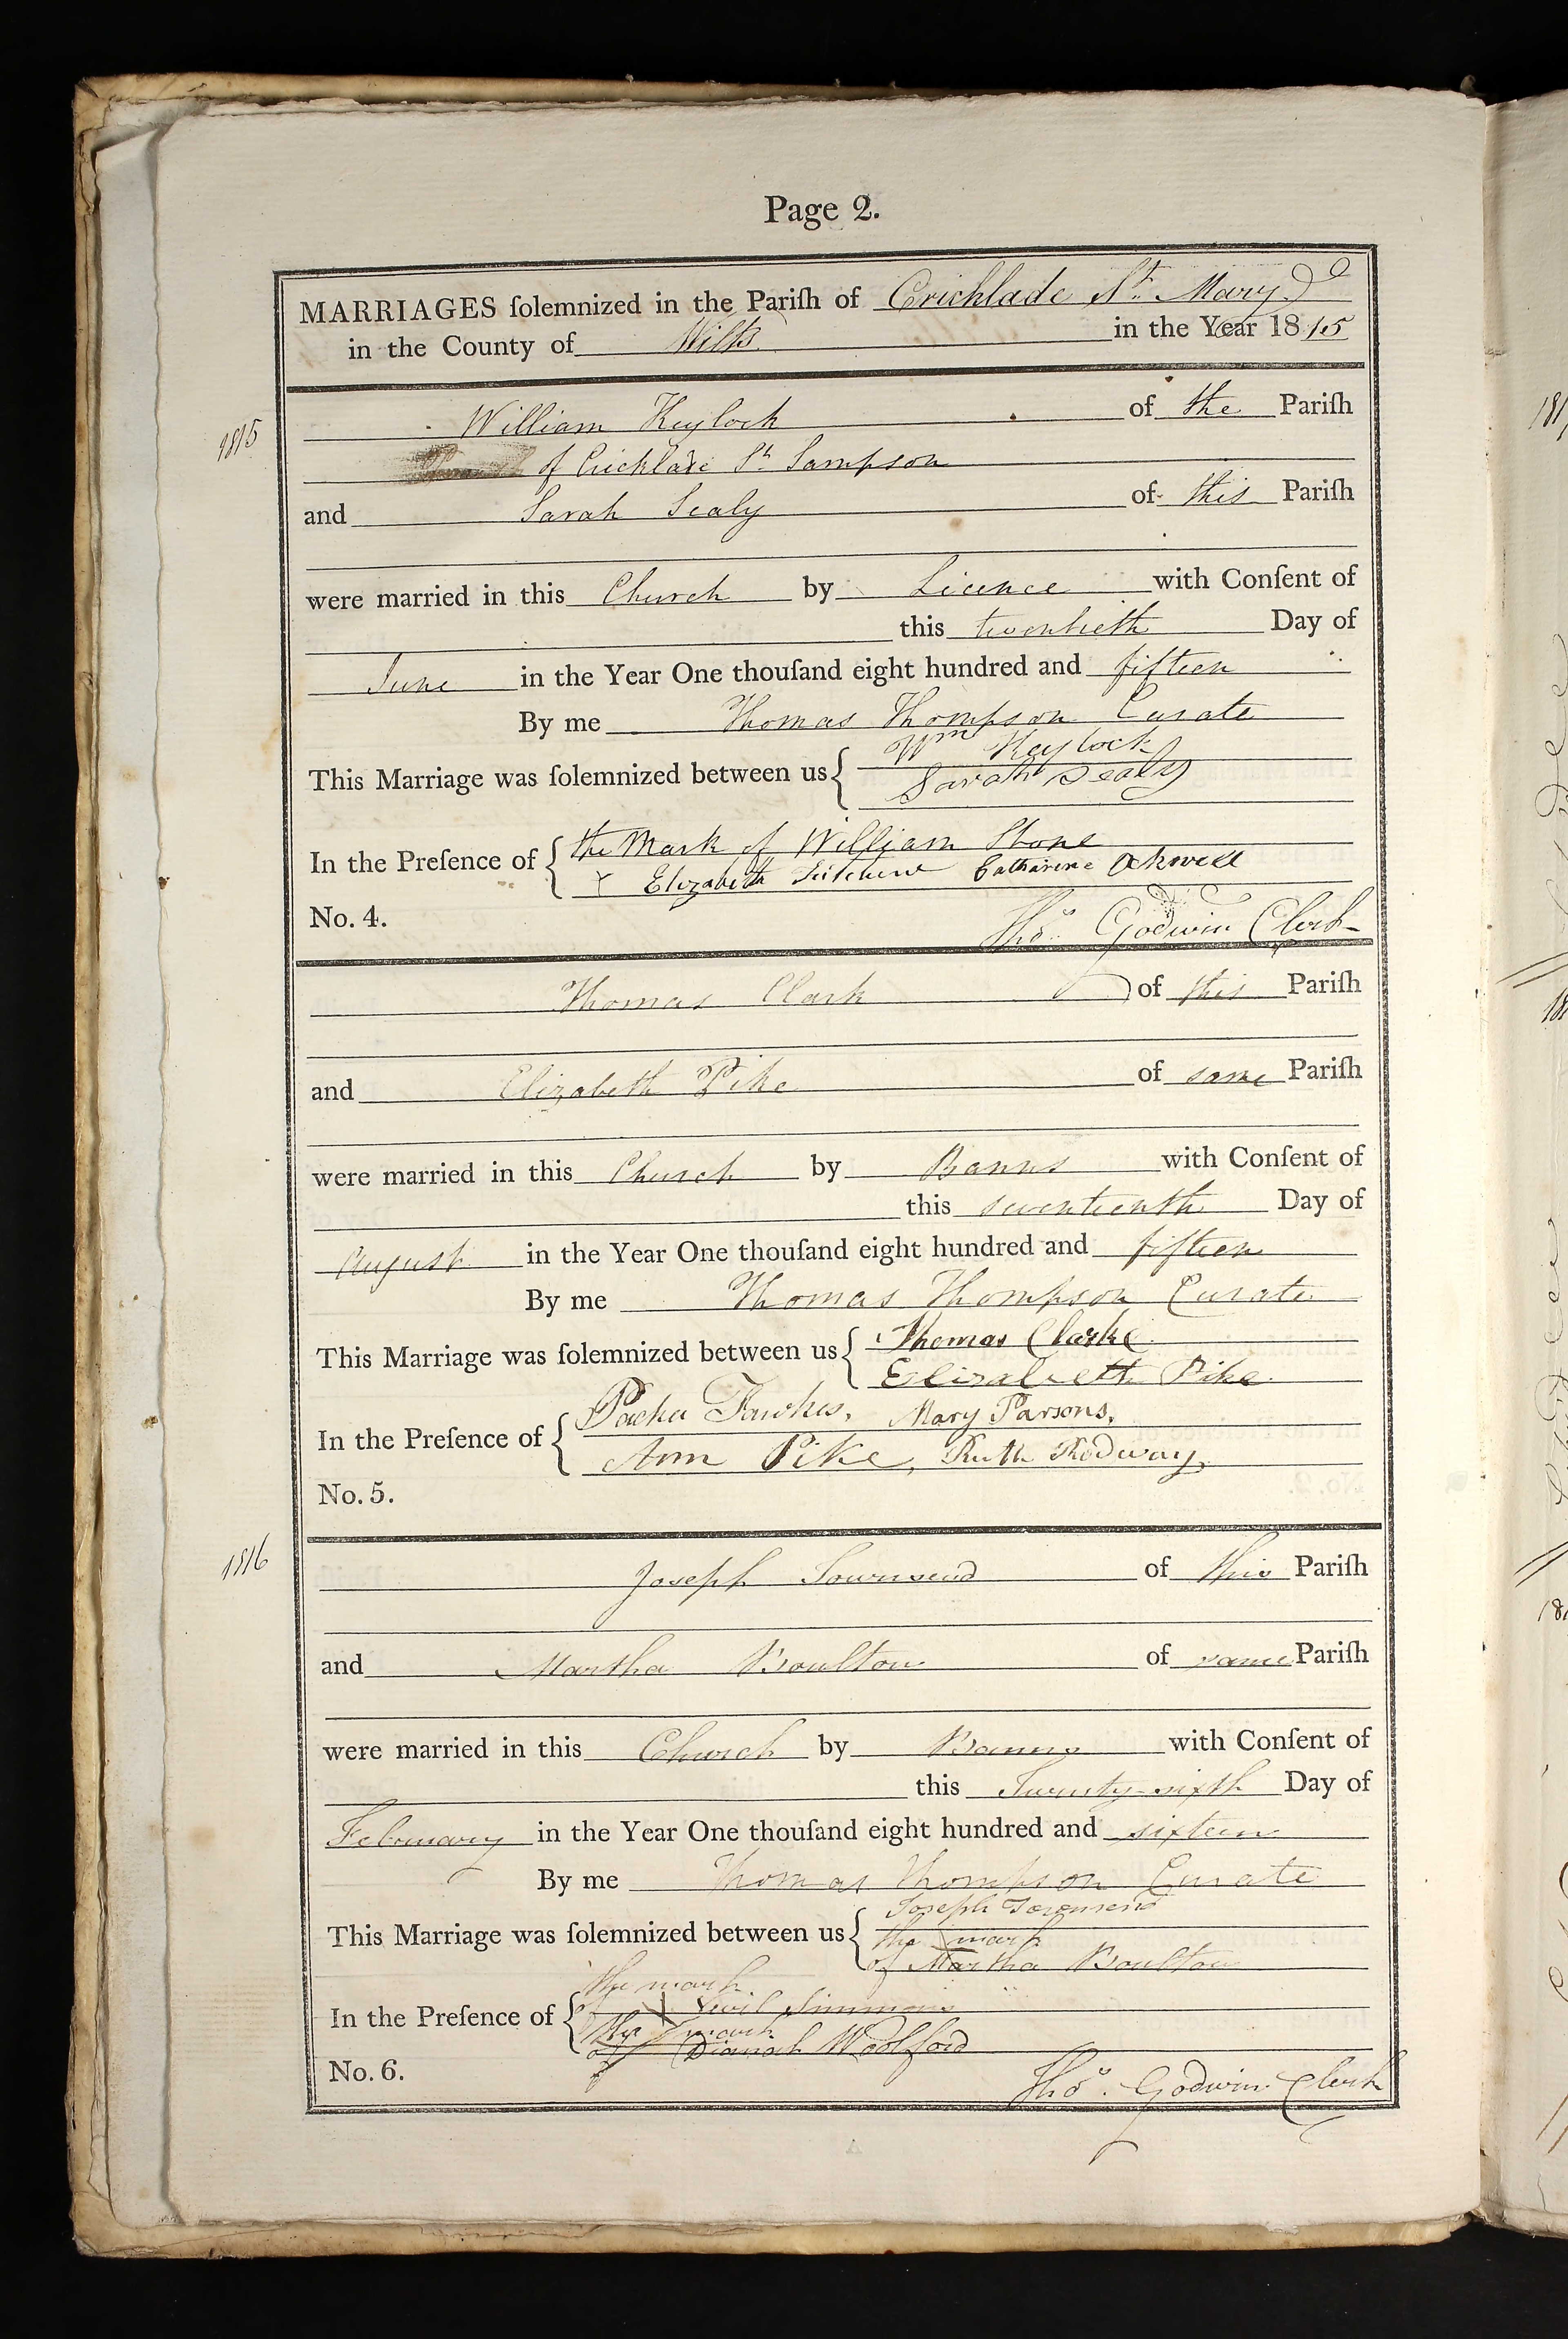 Page 2.
MARRIAGES ſolemnized in the Pariſh of Cricklade St. Mary
in the County of Wilts in the Year 1815
1815
William Keylock of the Pariſh
of Cricklade St Sampson
and Sarah Sealy of this Pariſh
were married in this Church by Licence with Conſent of
this twentieth Day of
June in the Year One thouſand eight hundred and fifteen
By me Thomas Thompson Curate
This Marriage was ſolemnized between us { Wm Keylock
Sarah Sealy
In the Preſence of { the Mark of William Stone
X Elizabeth Catharine Ockwell
No. 4. Thos. Godwin Clerk
Thomas Clark of this Pariſh
and Elizabeth Pike of same Pariſh
were married in this Church by Banns with Conſent of
this seventeenth Day of
August in the Year One thouſand eight hundred and fifteen
By me Thomas Thompson Curate
This Marriage was ſolemnized between us { Thomas Clarke
Elizabeth Pike
In the Preſence of { Fawkes, Mary Parsons,
Ann Pike, Ruth Rodway,
No. 5.
1816
Joseph Townsend of this Pariſh
and Martha Boulton of same Pariſh
were married in this Church by Banns with Conſent of
this Twenty-sixth Day of
February in the Year One thouſand eight hundred and sixteen
By me Thomas Thompson Curate
This Marriage was ſolemnized between us { Joseph Townsend
the mark
of Martha Boulton
In the Preſence of { the mark
of Simmons
the mark
of Dianah Woolford
No. 6. Thos. Godwin Clerk